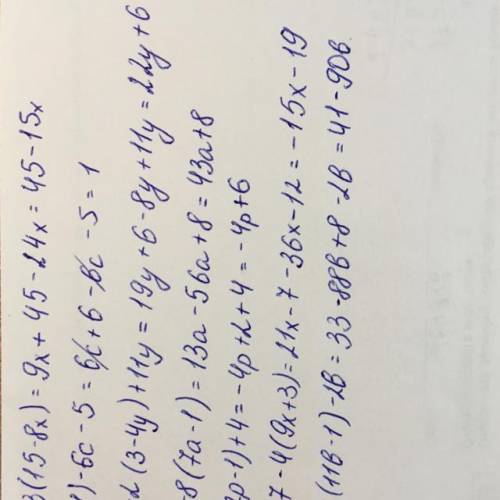 3(15-8x)=9x+45-24x=45-15x
)-6c-5=6c+6-6c-5=1
2(3-4y)+11y=19y+6-8y+11y=22y+6
-8(7a-1)=13a-56a+8=43a+8
p-1)+4=-4p+2+4=-4p+6
7-4(9x+3)=21x-7-36x-12=-15x-19
(11в-1)-2в=33-88в+8-2в=41-90в.